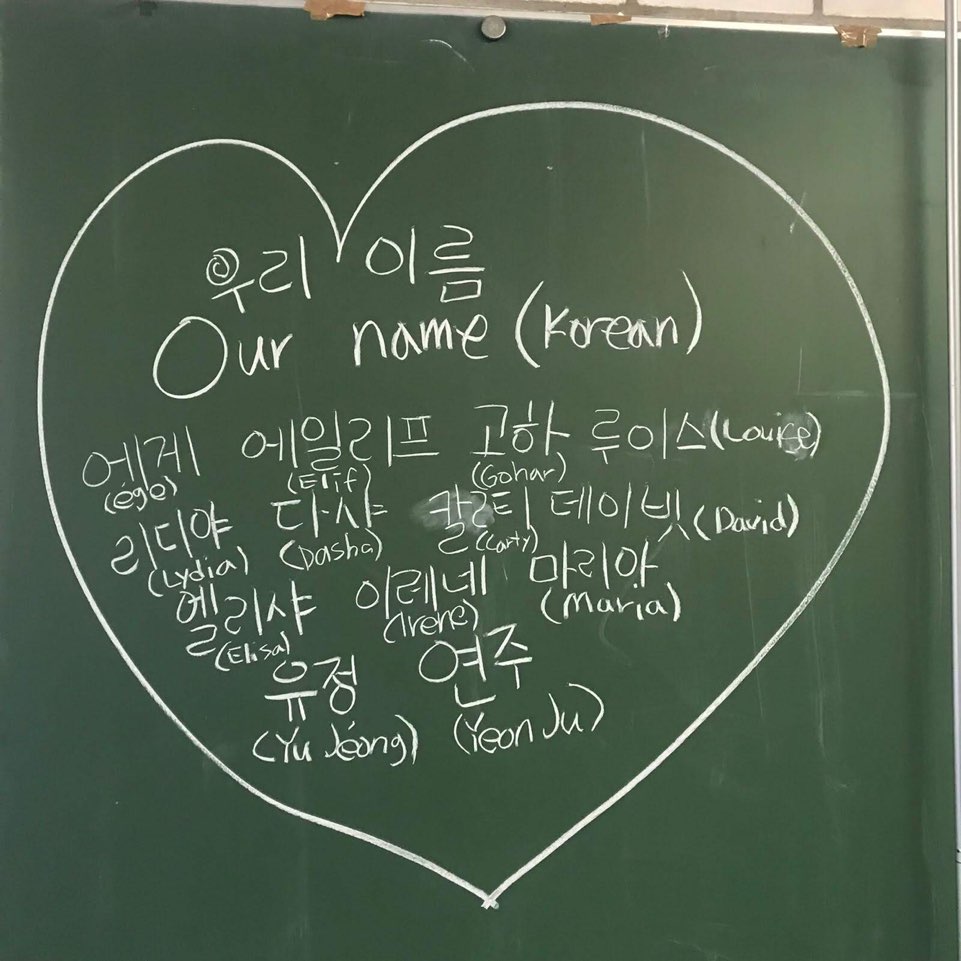 우리 이름
Our name (Korean)
에게 에일리프 고하 루이스 (Louise)
(ége) (Elif) (Gohar)
리디야 다샤 칼티 데이빗 (David)
(Lydia) (Dasha) (Carty)
엘리샤 이레네 마리아
(Elisa) (Irene) (Maria)
유정 연주
(Yu Jeong) (Yeon Ju)